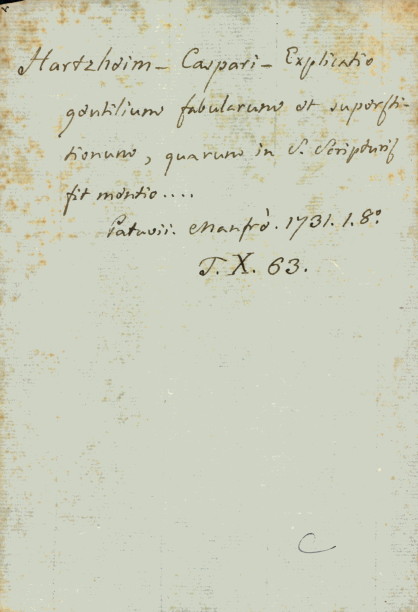 Hartzheim - Caspari - Explicatio
gentilium fabularum et supersti-
tionum, quarum in S. Scripturis
fit mentio....
Patavii. Manfrè. 1731. 1. 8º
T. X. 63.
C